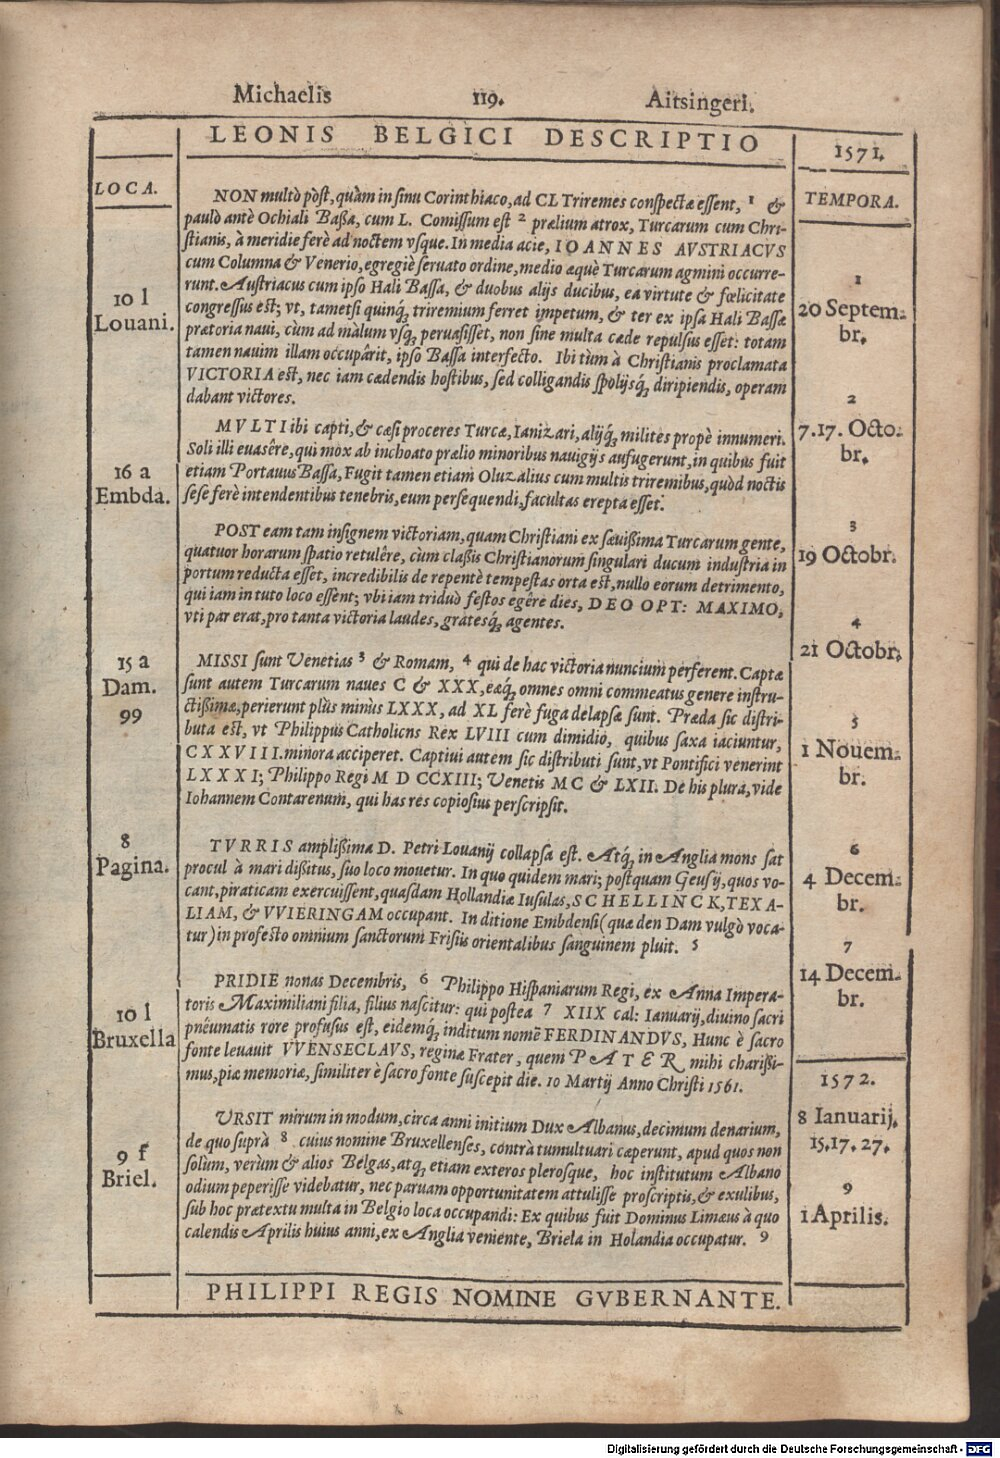 Michaelis 119. Aitsingeri.
LEONIS BELGICI DESCRIPTIO
1571.
LOCA.
TEMPORA.
NON multò pòst, quàm in sinu Corinthiaco, ad CL Triremes conspectæ essent, 1 &
paulò antè Ochiali Baßa, cum L. Comissum est 2 prælium atrox, Turcarum cum Chri-
stianis, à meridie ferè ad noctem vsque. In media acie, IOANNES AVSTRIACVS
cum Columna & Venerio, egregiè seruato ordine, medio æquè Turcarum agmini occurre-
runt. Austriacus cum ipso Hali Bassa, & duobus alijs ducibus, ea virtute & fœlicitate
congressus est; vt, tametsi quinq́; triremium ferret impetum, & ter ex ipsa Hali Bassæ
prætoria naui, cùm ad màlum vsq́; peruasisset, non sine multa cæde repulsus esset: totam
tamen nauim illam occupârit, ipso Bassa interfecto. Ibi tùm à Christianis proclamata
VICTORIA est, nec iam cædendis hostibus, sed colligandis spolijsq́; diripiendis, operam
dabant victores.
MVLTI ibi capti, & cæsi proceres Turcæ, Ianizari, alijq́; milites propè innumeri.
Soli illi euasêre, qui mox ab inchoato prælio minoribus nauigijs aufugerunt, in quibus fuit
etiam Portauus Bassa, Fugit tamen etiam Oluzalius cum multis triremibus, quòd noctis
sese ferè intendentibus tenebris, eum persequendi, facultas erepta esset.
POST eam tam insignem victoriam, quam Christiani ex sæuißima Turcarum gente,
quatuor horarum spatio retulêre, cùm claßis Christianorum singulari ducum industria in
portum reducta esset, incredibilis de repentè tempestas orta est, nullo eorum detrimento,
qui iam in tuto loco essent; vbi iam triduò festos egêre dies, DEO OPT: MAXIMO,
vti par erat, pro tanta victoria laudes, gratesq́; agentes.
MISSI sunt Venetias 3 & Romam, 4 qui de hac victoria nuncium perferent. Captæ
sunt autem Turcarum naues C & XXX, eæq́; omnes omni commeatus genere instru-
ctißimæ, perierunt plùs minùs LXXX, ad XL ferè fuga delapsæ sunt. Præda sic distri-
buta est, vt Philippus Catholicns Rex LVIII cum dimidio, quibus saxa iaciuntur,
CXXVIII. minora acciperet. Captiui autem sic distributi sunt, vt Pontifici venerint
LXXXI; Philippo Regi M D CCXIII; Venetis MC & LXII. De his plura, vide
Iohannem Contarenum, qui has res copiosius perscripsit.
TVRRIS amplißima D. Petri Louanij collapsa est. Atq́; in Anglia mons sat
procul à mari dißitus, suo loco mouetur. In quo quidem mari; postquam Geusij, quos vo-
cant, piraticam exercuissent, quasdam Hollandiæ Iusulas, SCHELLINCK, TEXA-
LIAM, & VVIERINGAM occupant. In ditione Embdensi (quæ den Dam vulgò voca-
tur) in profesto omnium sanctorum Frisiis orientalibus sanguinem pluit. 5
PRIDIE nonas Decembris, 6 Philippo Hispaniarum Regi, ex Anna Impera-
toris Maximiliani filia, filius nascitur: qui postea 7 XIIX cal: Ianuarij, diuino sacri
pneûmatis rore profusus est, eidemq́; inditum nomẽ FERDINANDVS, Hunc è sacro
fonte leuauit VVENSECLAVS, reginæ Frater, quem PATER mihi charißi-
mus, piæ memoriæ, similiter è sacro fonte suscepit die. 10 Martij Anno Christi 1561.
VRSIT mirum in modum, circa anni initium Dux Albanus, decimum denarium,
de quo suprà 8 cuius nomine Bruxellenses, contrà tumultuari cæperunt, apud quos non
solùm, verùm & alios Belgas, atq́; etiam exteros plerosque, hoc institutum Albano
odium peperisse videbatur, nec paruam opportunitatem attulisse proscriptis, & exulibus,
sub hoc prætextu multa in Belgio loca occupandi: Ex quibus fuit Dominus Limæus à quo
calendis Aprilis huius anni, ex Anglia veniente, Briela in Holandia occupatur. 9
10 l
Louani.
16 a
Embda.
15 a
Dam.
99
8
Pagina.
10 l
Bruxella
9 f
Briel.
1
20 Septem-
br.
2
7.17. Octo-
br.
3
19 Octobr.
4
21 Octobr.
5
1 Nouem-
br.
6
4 Decem-
br.
7
14 Decem-
br.
1572.
8 Ianuarij.
15.17.27.
9
1 Aprilis.
PHILIPPI REGIS NOMINE GVBERNANTE.
Digitalisierung gefördert durch die Deutsche Forschungsgemeinschaft - DFG